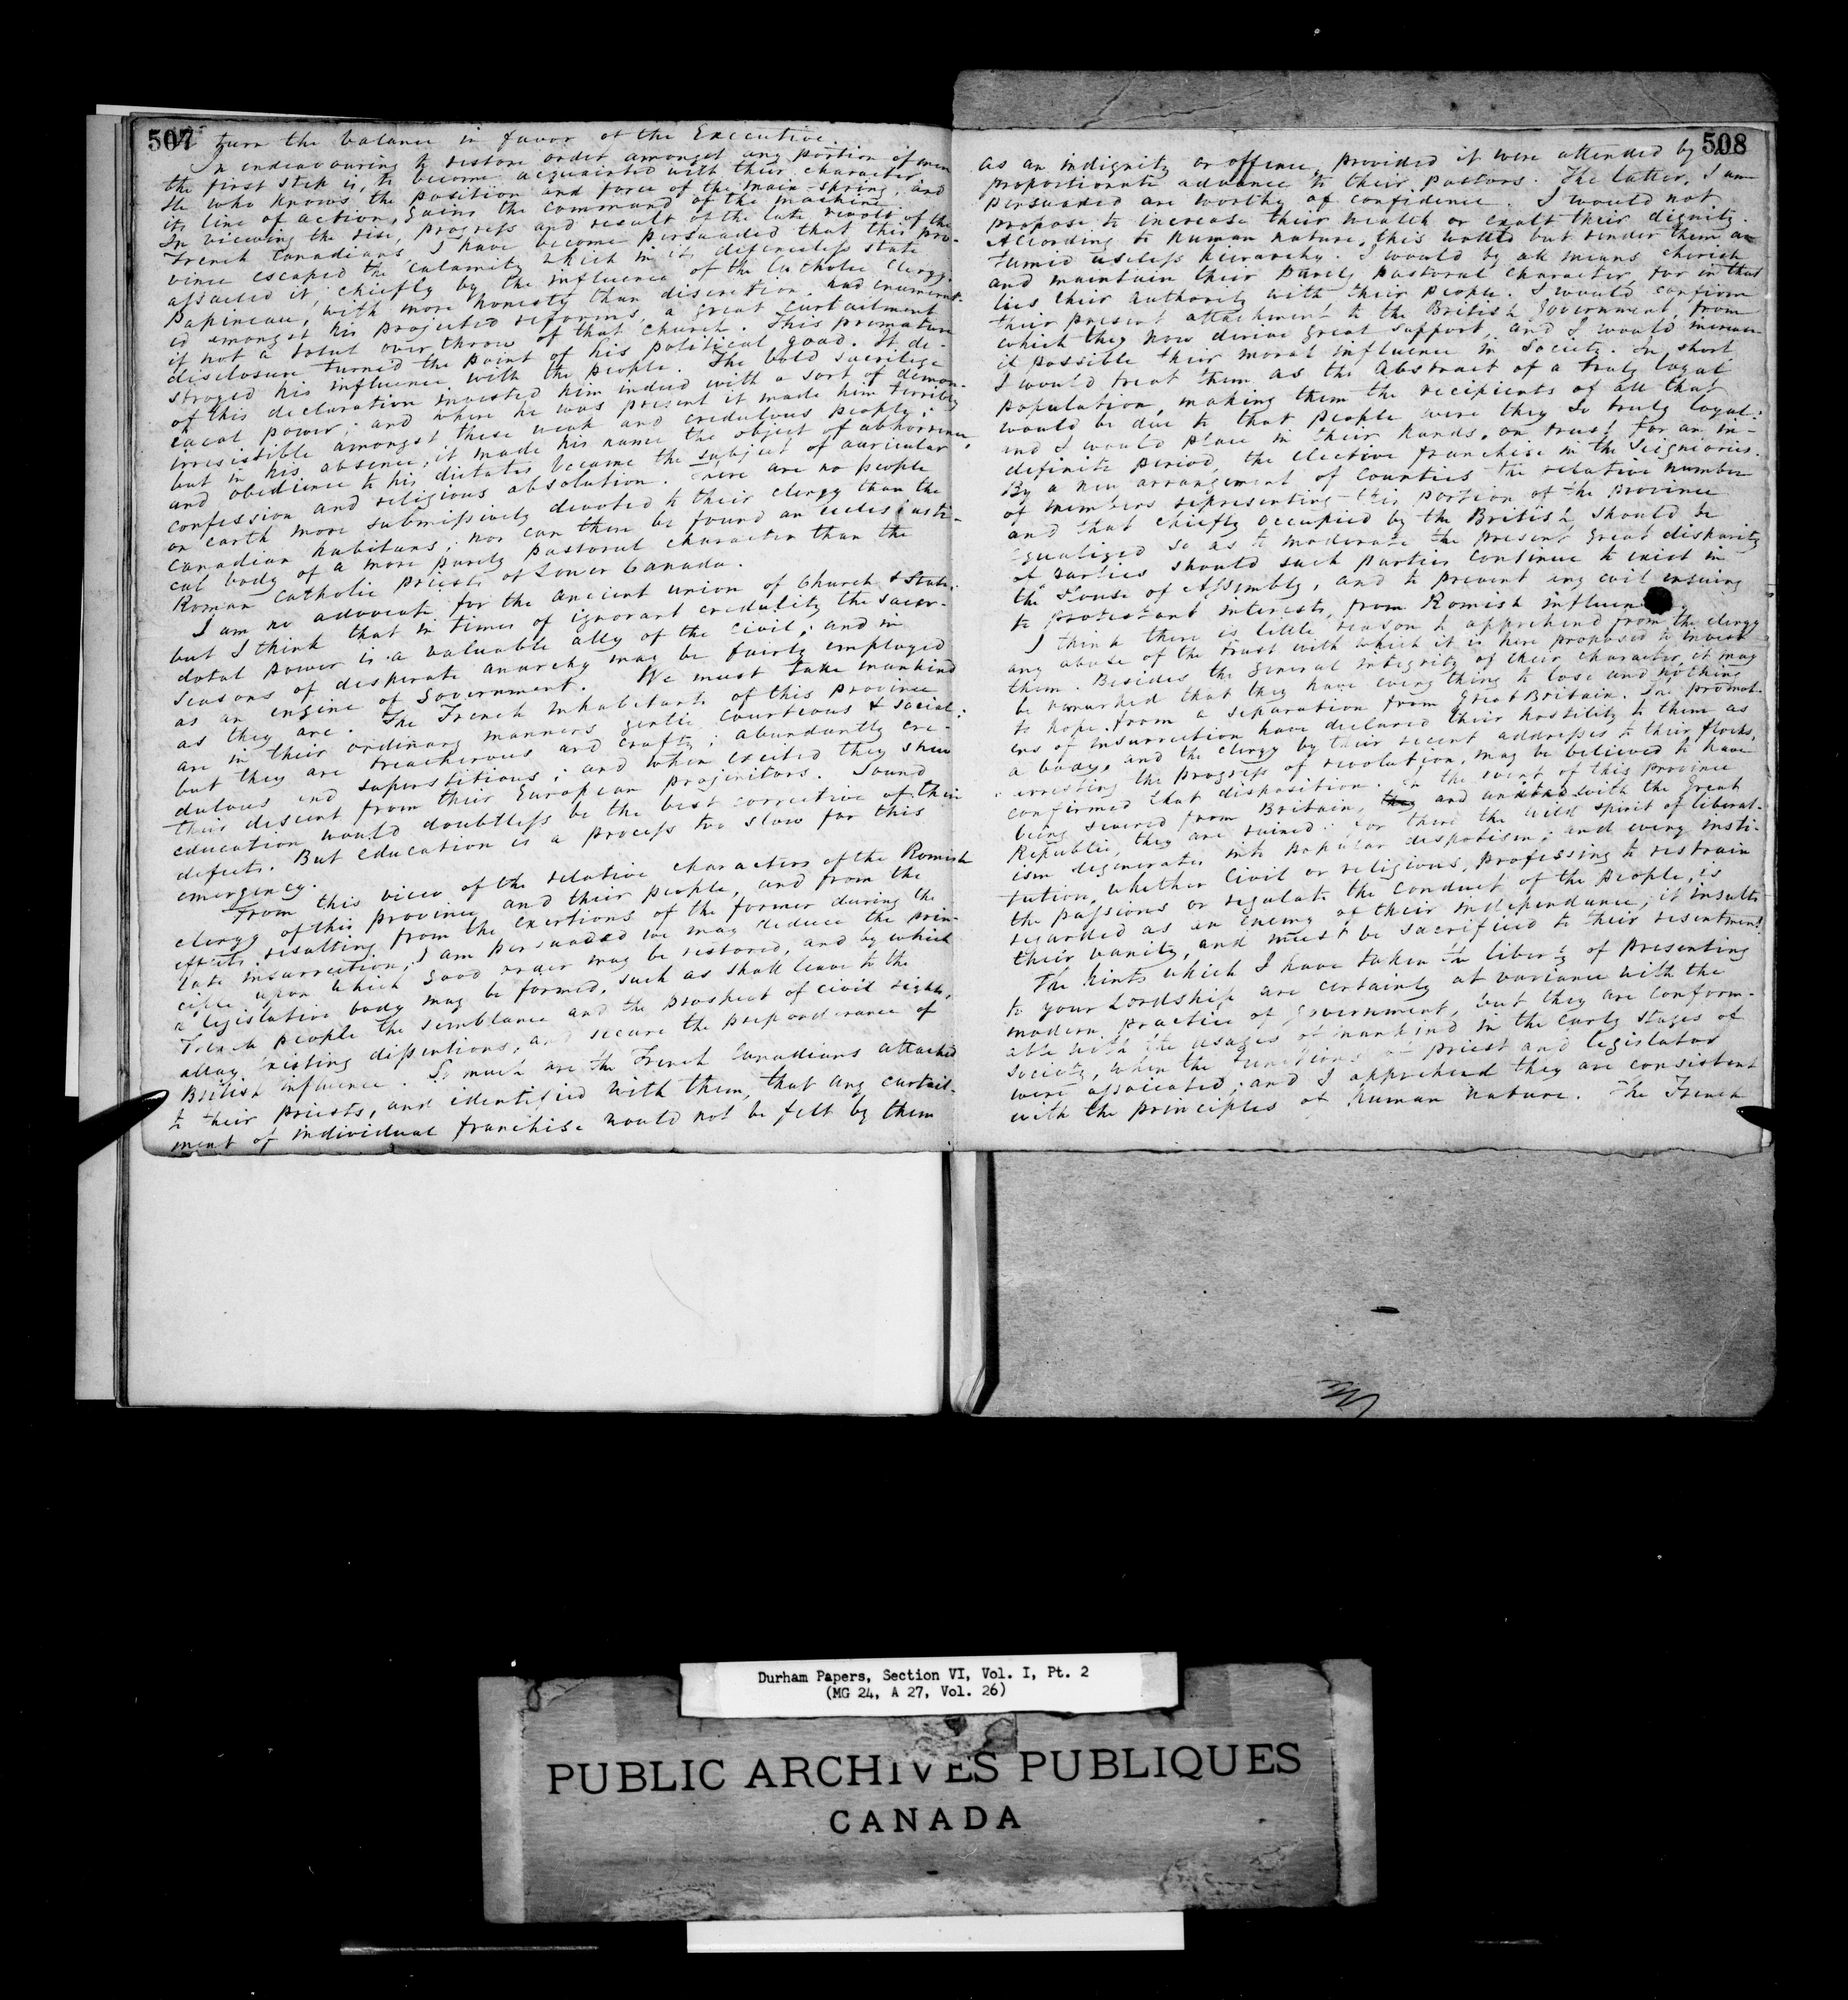 507
to turn the balance in favor of the Executive.
In endeavouring to restore order amongst any portion of men
the first step is, to become acquainted with their character.
He who knows the position and force of the main-spring, and
its line of action, gains the command of the machine.
In viewing the rise, progress and result of the late revolt of the
French Canadians, I have become persuaded that this pro-
vince escaped the calamity which in its defenceless state
assailed it, chiefly by the influence of the Catholic Clergy.
Papineau, with more honesty than discretion, had enumerat-
ed amongst his projected reforms, a great curtailment
if not a total overthrow of that church. This premature
disclosure turned the point of his political goad. It de-
stroyed his influence with the people. The bold sacrilege
of this declaration invested him indeed with a sort of demon-
iacal power; and where he was present it made him terribly
irresistible amongst these weak and credulous people;
but in his absence, it made his name the object of abhorrence,
and obedience to his dictates became the subject of auricular
confession and religious absolution. There are no people
on earth more submissively devoted to their clergy than the
Canadian habitans; nor can there be found an ecclesiasti-
cal body of a more purely pastoral character than the
Roman Catholic priests of Lower Canada.
I am no advocate for the ancient union of Church & State;
but I think that in times of ignorant credulity the sacer-
dotal power is a valuable ally of the civil; and in
seasons of desperate anarchy may be fairly employed
as an engine of Government. We must take mankind
as they are. The French inhabitants of this province
are in their ordinary manners gentle courteous & social:
but they are treacherous and crafty; abundantly cre-
dulous and superstitious; and when excited they shew
their descent from their European projenitors. Sound
education would doubtless be the best corrective of their
defects. But education is a process too slow for this
emergency.
From this view of the relative characters of the Romish
clergy of this province and their people, and from the
effects resulting from the exertions of the former during the
late insurrection, I am persuaded we may deduce the prin-
ciple upon which good order may be restored, and by which
a legislative body may be formed, such as shall leave to the
French people the semblance and the prospect of civil rights,
allay existing dissentions, and secure the preponderance of
British influence. So much are the French Canadians attached
to their priests, and identified with them, that any curtail-
ment of individual franchise would not be felt by them
508
as an indignity or offence, provided it were attended by
proportionate advance to their pastors. The latter, I am
persuaded are worthy of confidence. I would not
propose to increase their wealth or exalt their dignity.
According to human nature, this would but render them a
tumid useless hierarchy. I would by all means cherish
and maintain their purely pastoral character, for in that
lies their authority with their people. I would confirm
their present attachment to the British Government, from
which they now derive great support, and I would increase
if possible their moral influence in society. In short,
I would treat them as the abstract of a truly loyal
population, making them the recipients of all that
would be due to that people were they so truly loyal:
and I would place in their hands, on trust for an in-
definite period, the elective franchise in the Seigniories.
By a new arrangement of Counties the relative number
of members representing this portion of the province
and that chiefly occupied by the British, should be
equalized so as to moderate the present great disparity
of parties should such parties continue to exist in
the House of Assembly, and to prevent any evil ensuing
to protestant interests, from Romish influen
I think there is little reason to apprehend from the clergy
any abuse of the trust with which it is here proposed to invest
them. Besides the general integrity of their character, it may
be remarked that they have every thing to lose and nothing
to hope from a separation from Great Britain. The promot-
ers of insurrection have declared their hostility to them as
a body, and the clergy by their recent addresses to their flocks,
arresting the progress of revolution, may be believed to have
confirmed that disposition. In the event of this province
being severed from Britain, they and united with the Great
Republic, they are ruined: for there the wild spirit of liberal-
ism degenerates into popular despotism; and every insti-
tution, whether civil or religious, professing to restrain
the passions or regulate the conduct of the people, is
regarded as an enemy of their independance, it insults
their vanity, and must be sacrificed to their resentment.
The hints which I have taken the liberty of presenting
to your Lordship are certainly at variance with the
modern practice of government, but they are conform-
able with the usages of mankind in the early stages of
society, when the functions of priest and legislator
were associated; and I apprehend they are consistent
with the principles of human nature. The French
Durham Papers, Section VI, Vol. I, Pt. 2
(MG 24, A 27, Vol. 26)
PUBLIC ARCHIVES PUBLIQUES
CANADA